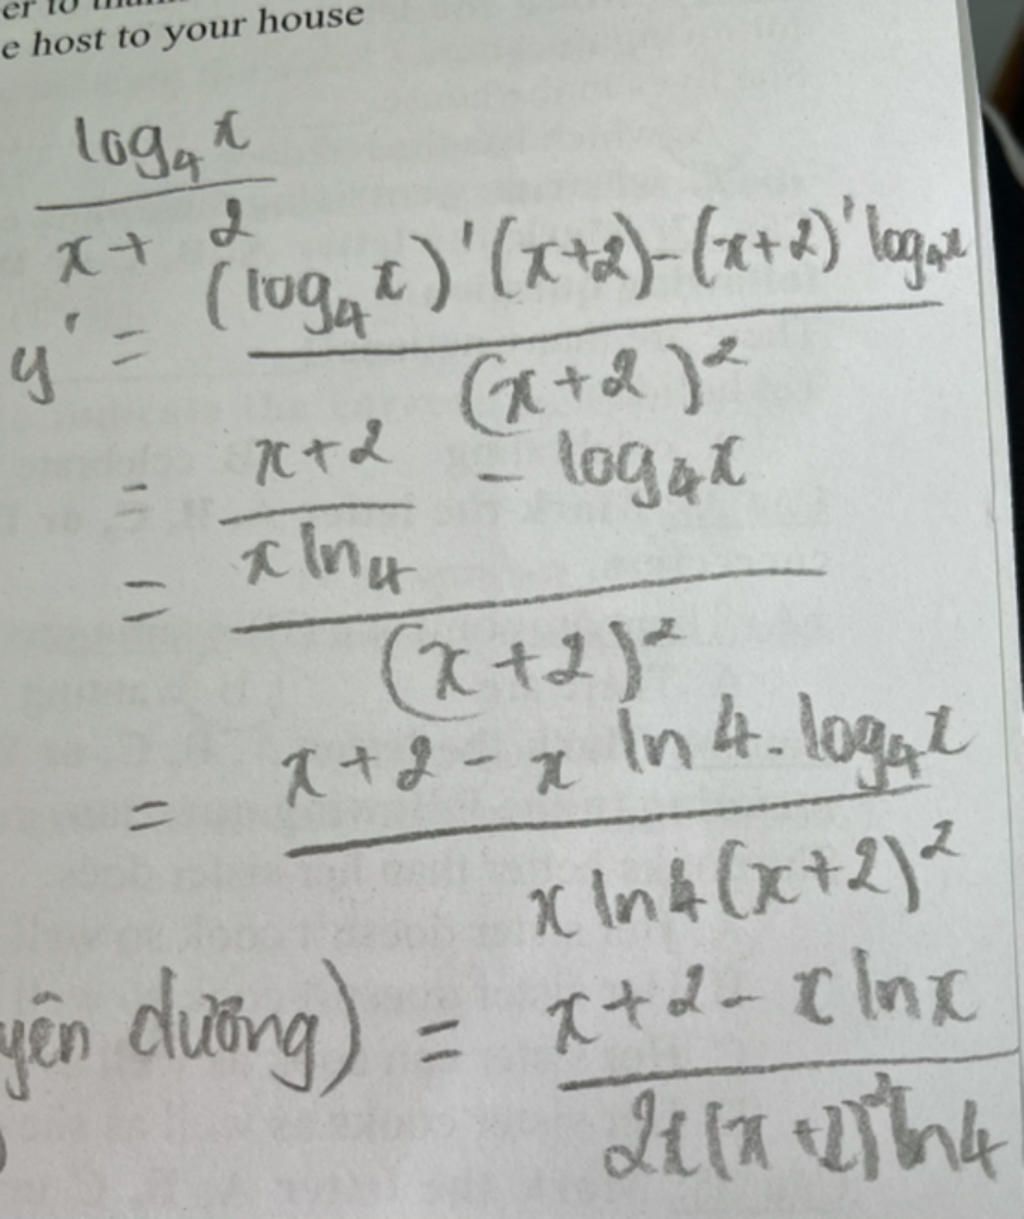 e host to your house
log₄ x
x + 2
y' = (log₄ x)' (x+2) - (x+2)' log₄x
(x+2)²
= x+2 - log₄x
x ln4
=
(x+2)²
= x+2 - x ln 4. log₄x
x ln4 (x+2)²
yên dương) = x+2 - x lnx
2x(x+2)² ln4